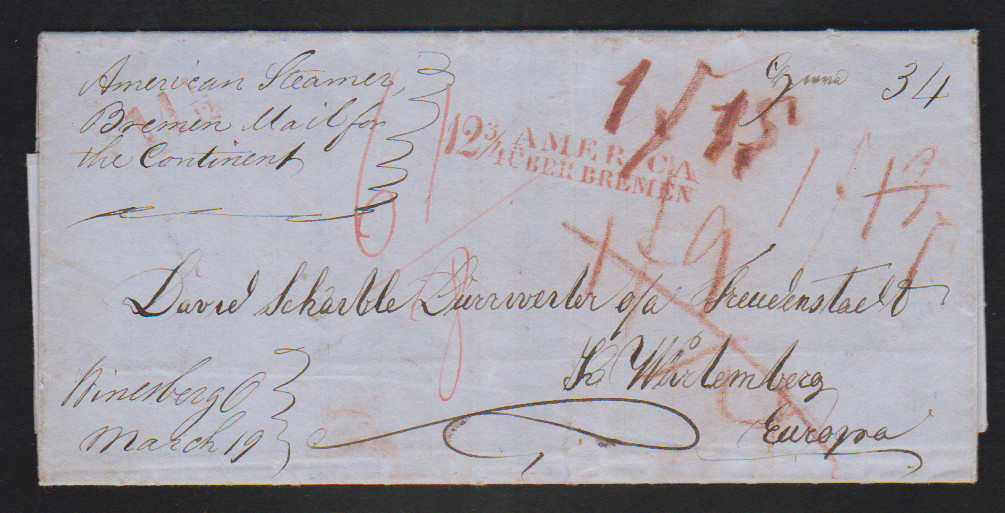 American Steamer,
Bremen Mail for
the Continent
34
12 3/
AMERICA
ÜBER BREMEN
David Schäible Dürrweiler o/a Freudenstadt
Ko Würtemberg
Europa
Winesberg O
March 19